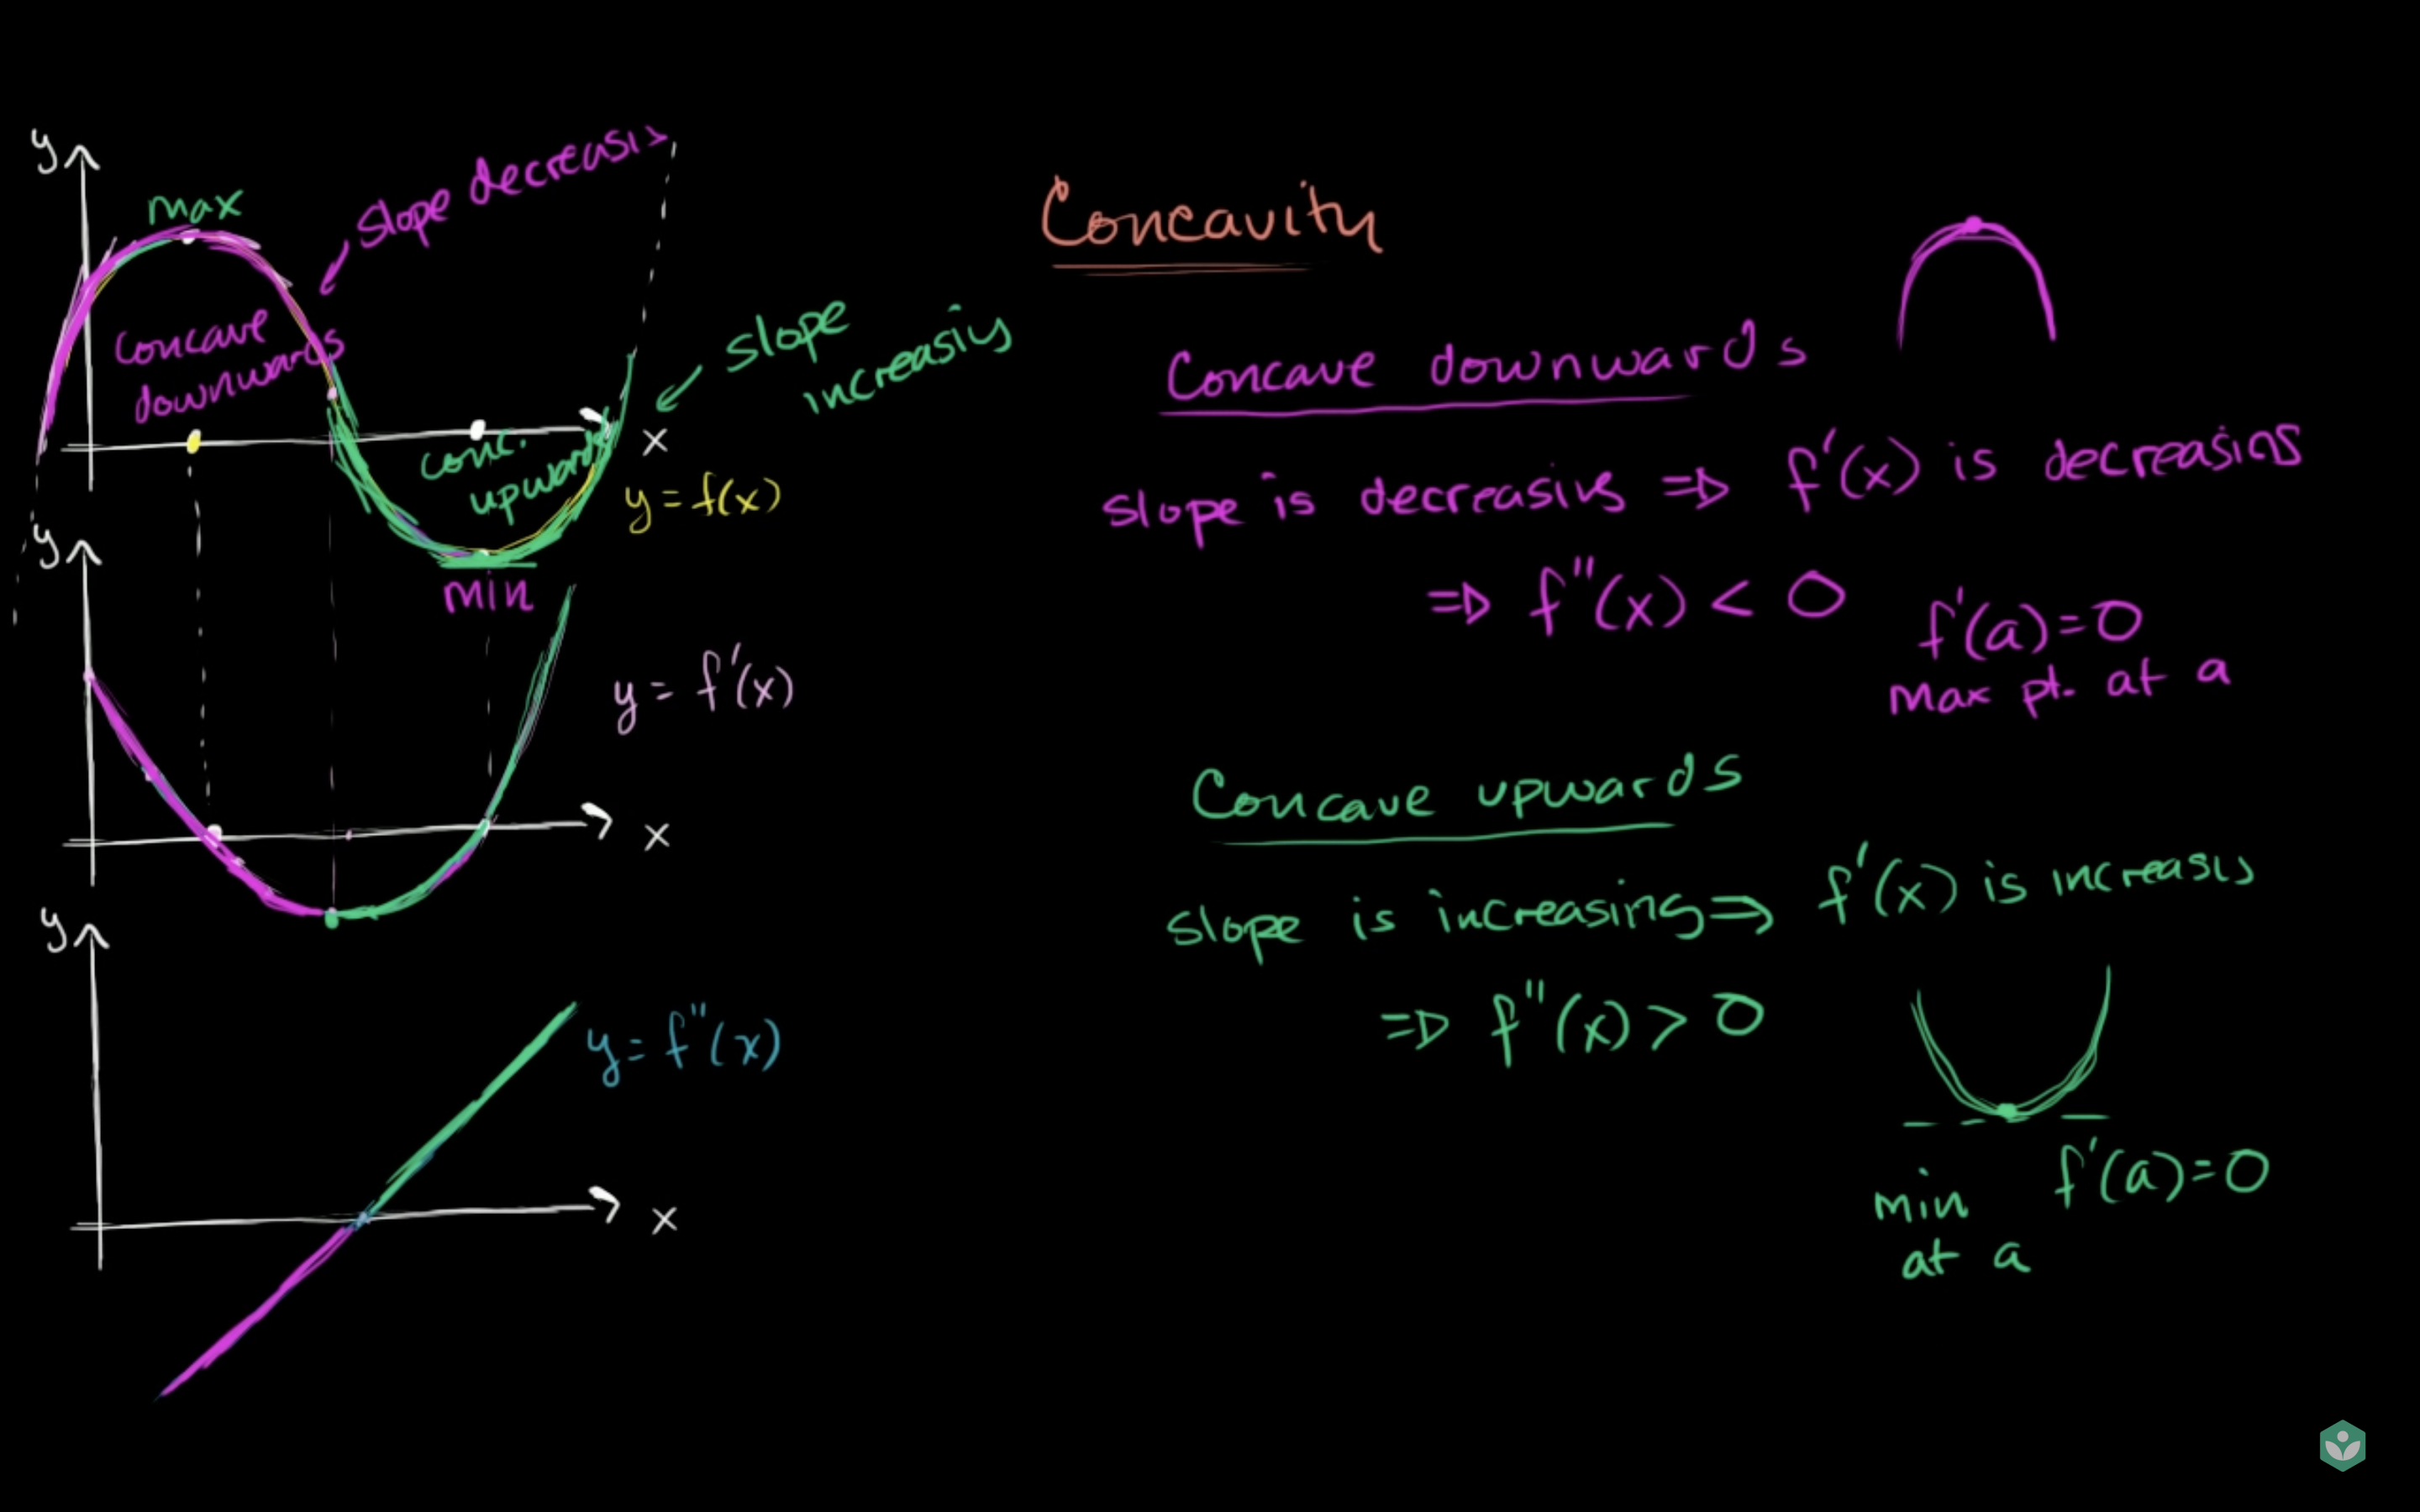 Concavity
y
max
slope decreasi
concave
downwards
slope
increasing
x
conc.
upwards
y = f(x)
min
y
y = f'(x)
x
y
y = f''(x)
x
Concave downwards
slope is decreasing ⇒ f'(x) is decreasing
⇒ f''(x) < 0
f'(a) = 0
max pt. at a
Concave upwards
slope is increasing ⇒ f'(x) is increasing
⇒ f''(x) > 0
min f'(a) = 0
at a